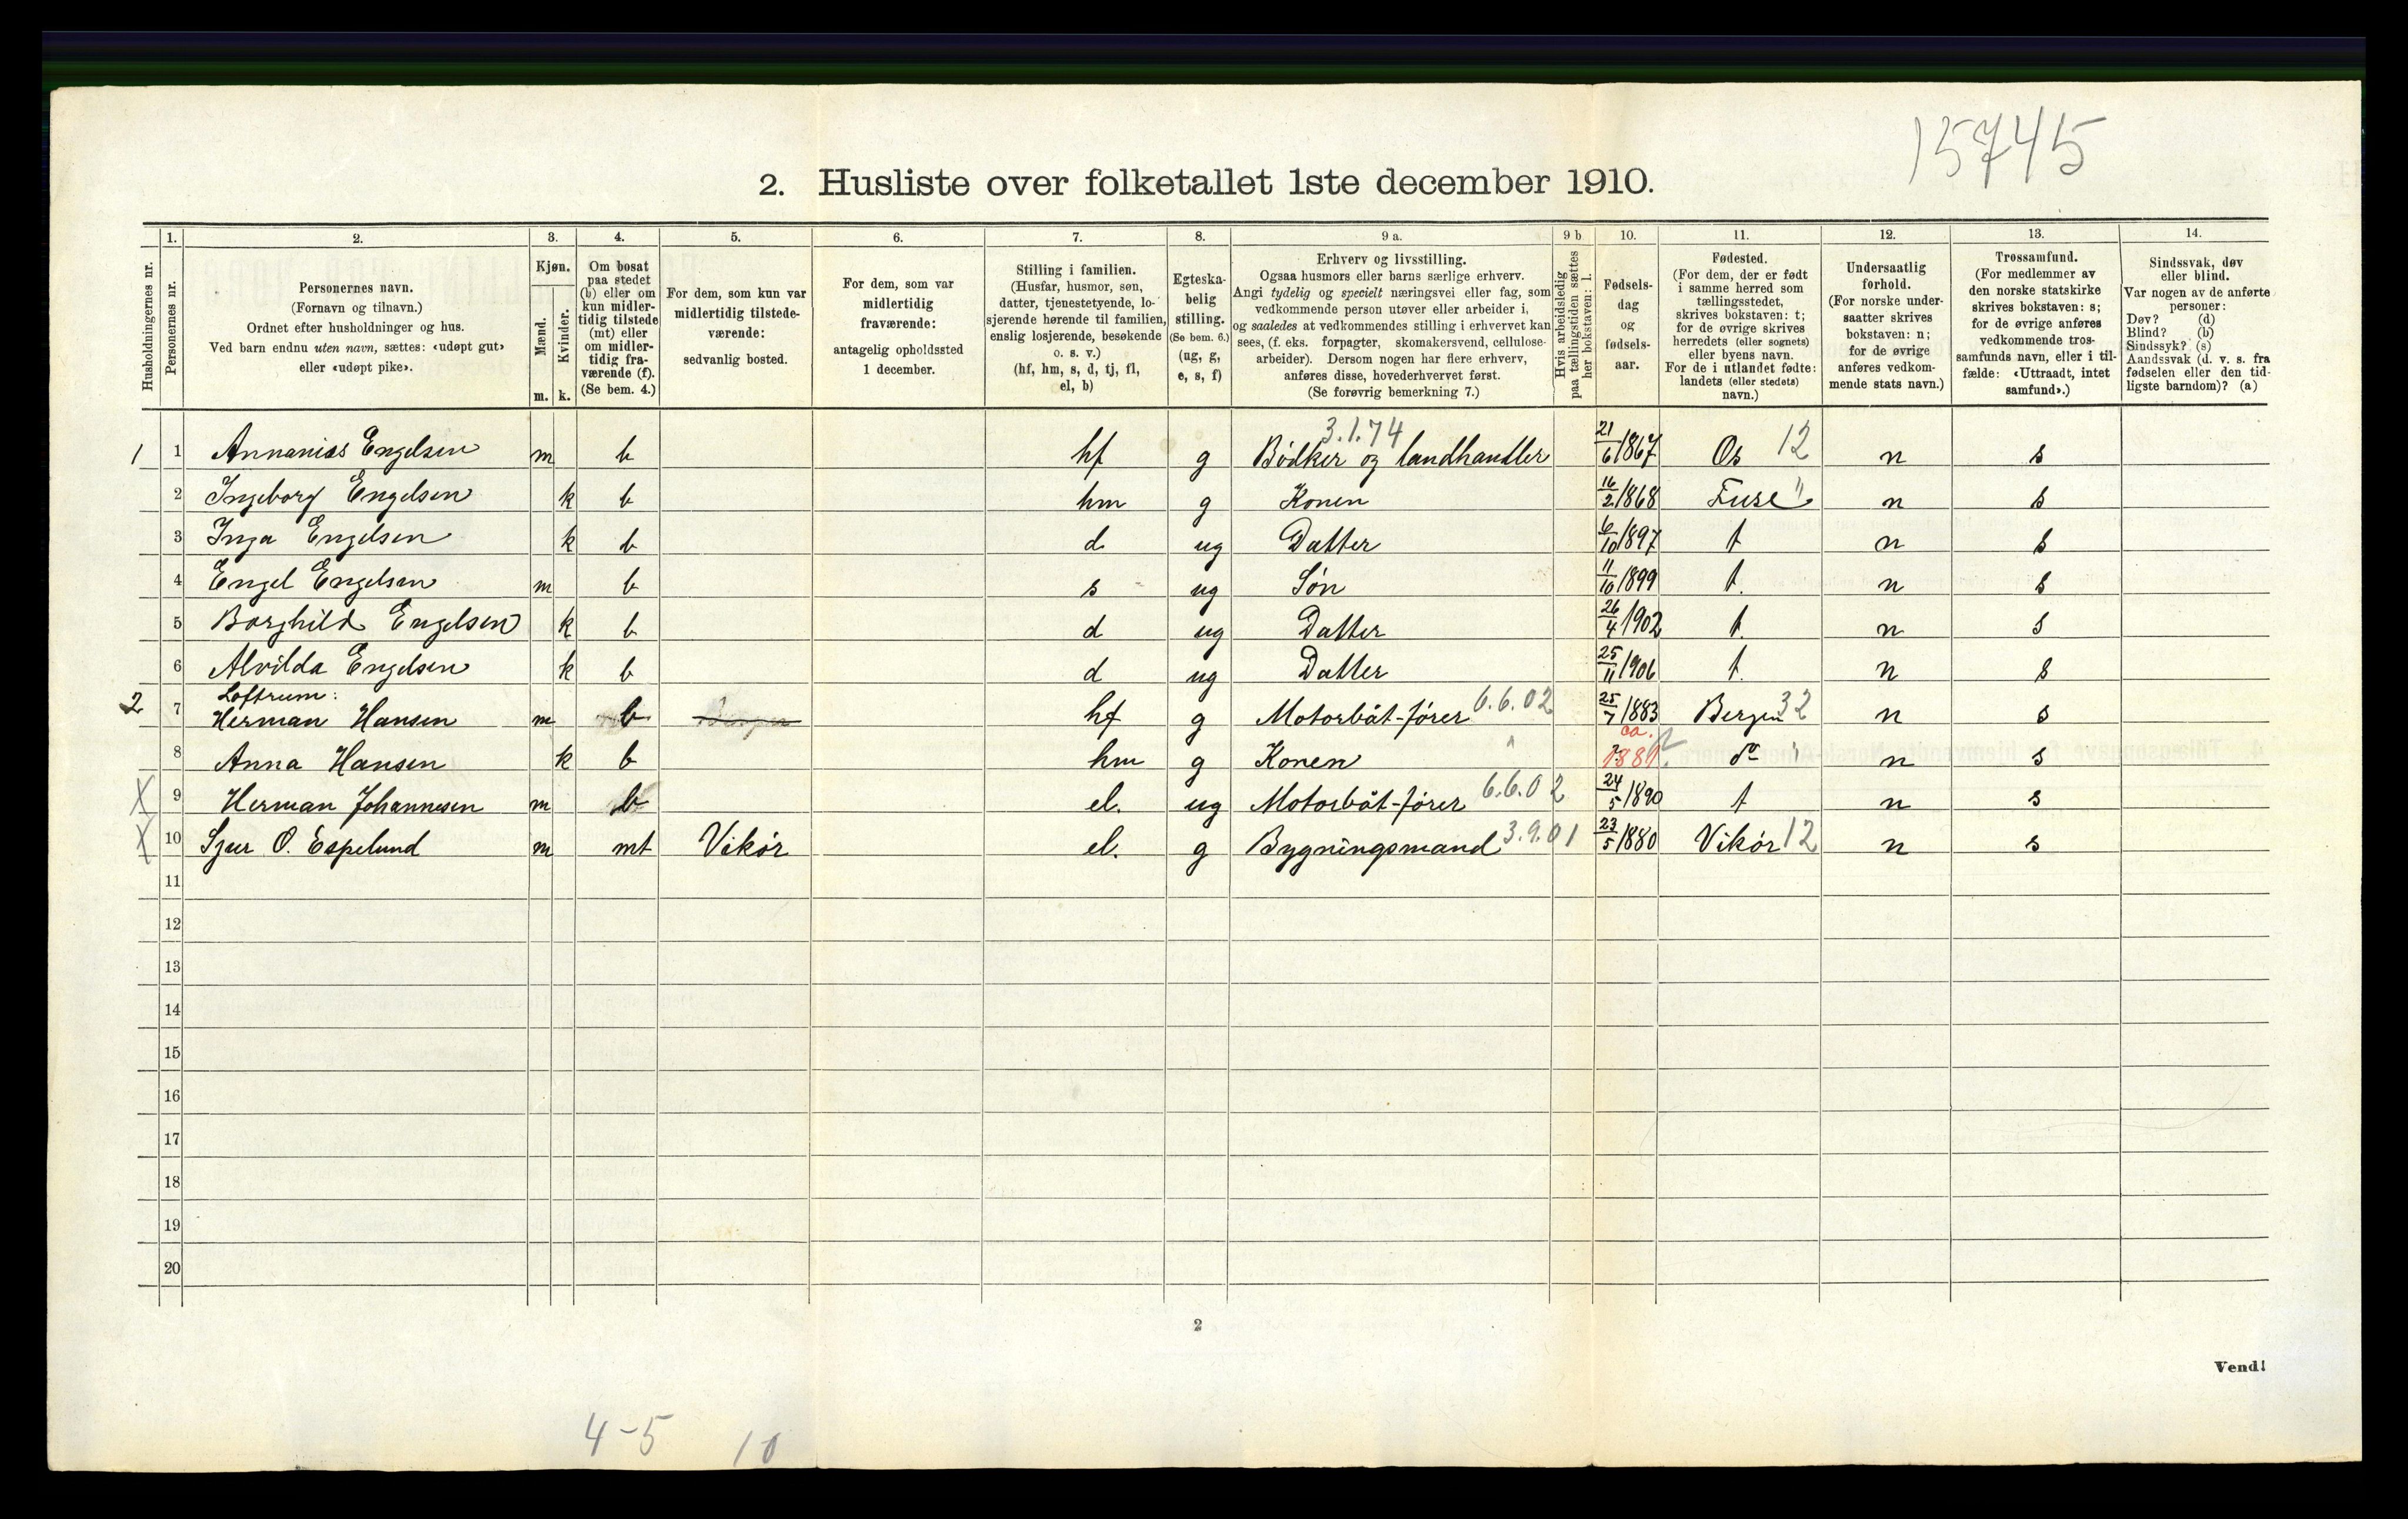 15745
2. Husliste over folketallet 1ste december 1910.
Husholdningernes nr.
1.
Personernes nr.
2.
Personernes navn.
(Fornavn og tilnavn.)
Ordnet efter husholdninger og hus.
Ved barn endnu uten navn, sættes: «udøpt gut»
eller «udøpt pike».
3.
Kjøn.
Mænd.
Kvinder.
m. k.
4.
Om bosat
paa stedet
(b) eller om
kun midler-
tidig tilstede
(mt) eller
om midler-
tidig fra-
værende (f).
(Se bem. 4.)
5.
For dem, som kun var
midlertidig tilstede-
værende:
sedvanlig bosted.
6.
For dem, som var
midlertidig
fraværende:
antagelig opholdssted
1 december.
7.
Stilling i familien.
(Husfar, husmor, søn,
datter, tjenestetyende, lo-
sjerende hørende til familien,
enslig losjerende, besøkende
o. s. v.)
(hf, hm, s, d, tj, fl,
el, b)
8.
Egteska-
belig
stilling.
(Se bem. 6.)
(ug, g,
e, s, f)
9 a.
Erhverv og livsstilling.
Ogsaa husmors eller barns særlige erhverv.
Angi tydelig og specielt næringsvei eller fag, som
vedkommende person utøver eller arbeider i,
og saaledes at vedkommendes stilling i erhvervet kan
sees, (f. eks. forpagter, skomakersvend, cellulose-
arbeider). Dersom nogen har flere erhverv,
anføres disse, hovederhvervet først.
(Se forøvrig bemerkning 7.)
9 b
Hvis arbeidsledig
paa tællingstiden sættes
her bokstaven: l.
10.
Fødsels-
dag
og
fødsels-
aar.
11.
Fødested.
(For dem, der er født
i samme herred som
tællingsstedet,
skrives bokstaven: t;
for de øvrige skrives
herredets (eller sognets)
eller byens navn.
For de i utlandet fødte:
landets (eller stedets)
navn.)
12.
Undersaatlig
forhold.
(For norske under-
saatter skrives
bokstaven: n;
for de øvrige
anføres vedkom-
mende stats navn.)
13.
Trossamfund.
(For medlemmer av
den norske statskirke
skrives bokstaven: s;
for de øvrige anføres
vedkommende tros-
samfunds navn, eller i til-
fælde: «Uttraadt, intet
samfund».)
14.
Sindssvak, døv
eller blind.
Var nogen av de anførte
personer:
Døv? (d)
Blind? (b)
Sindssyk? (s)
Aandssvak (d. v. s. fra
fødselen eller den tid-
ligste barndom)? (a)
3.1.74
1 1 Annanias Engelsen m b hf g Bødker og landhandler 21/6 1867 Os 12 n s
2 Ingeborg Engelsen k b hm g Konen 16/2 1868 Fuse " n s
3 Inga Engelsen k b d ug Datter 6/10 1897 t n s
4 Engel Engelsen m b s ug Søn 11/10 1899 t. n s
5 Borghild Engelsen k b d ug Datter 26/4 1902 t. n s
6 Alvilda Engelsen k b d ug Datter 25/11 1906 t. n s
Loftrum:
2 7 Herman Hansen m b hf g Motorbåt-fører 6.6.02 25/7 1883 Bergen 32 n s
ca.
8 Anna Hansen k b hm g Konen 1881 do n s
X 9 Herman Johannesen m b el. ug Motorbåt-fører 6.6.02 24/5 1890 t n s
X 10 Sjur O. Espelund m mt Vikør el. g Bygningsmand 3.9.01 23/5 1880 Vikør 12 n s
11
12
13
14
15
16
17
18
19
20
2
Vend!
4-5 10